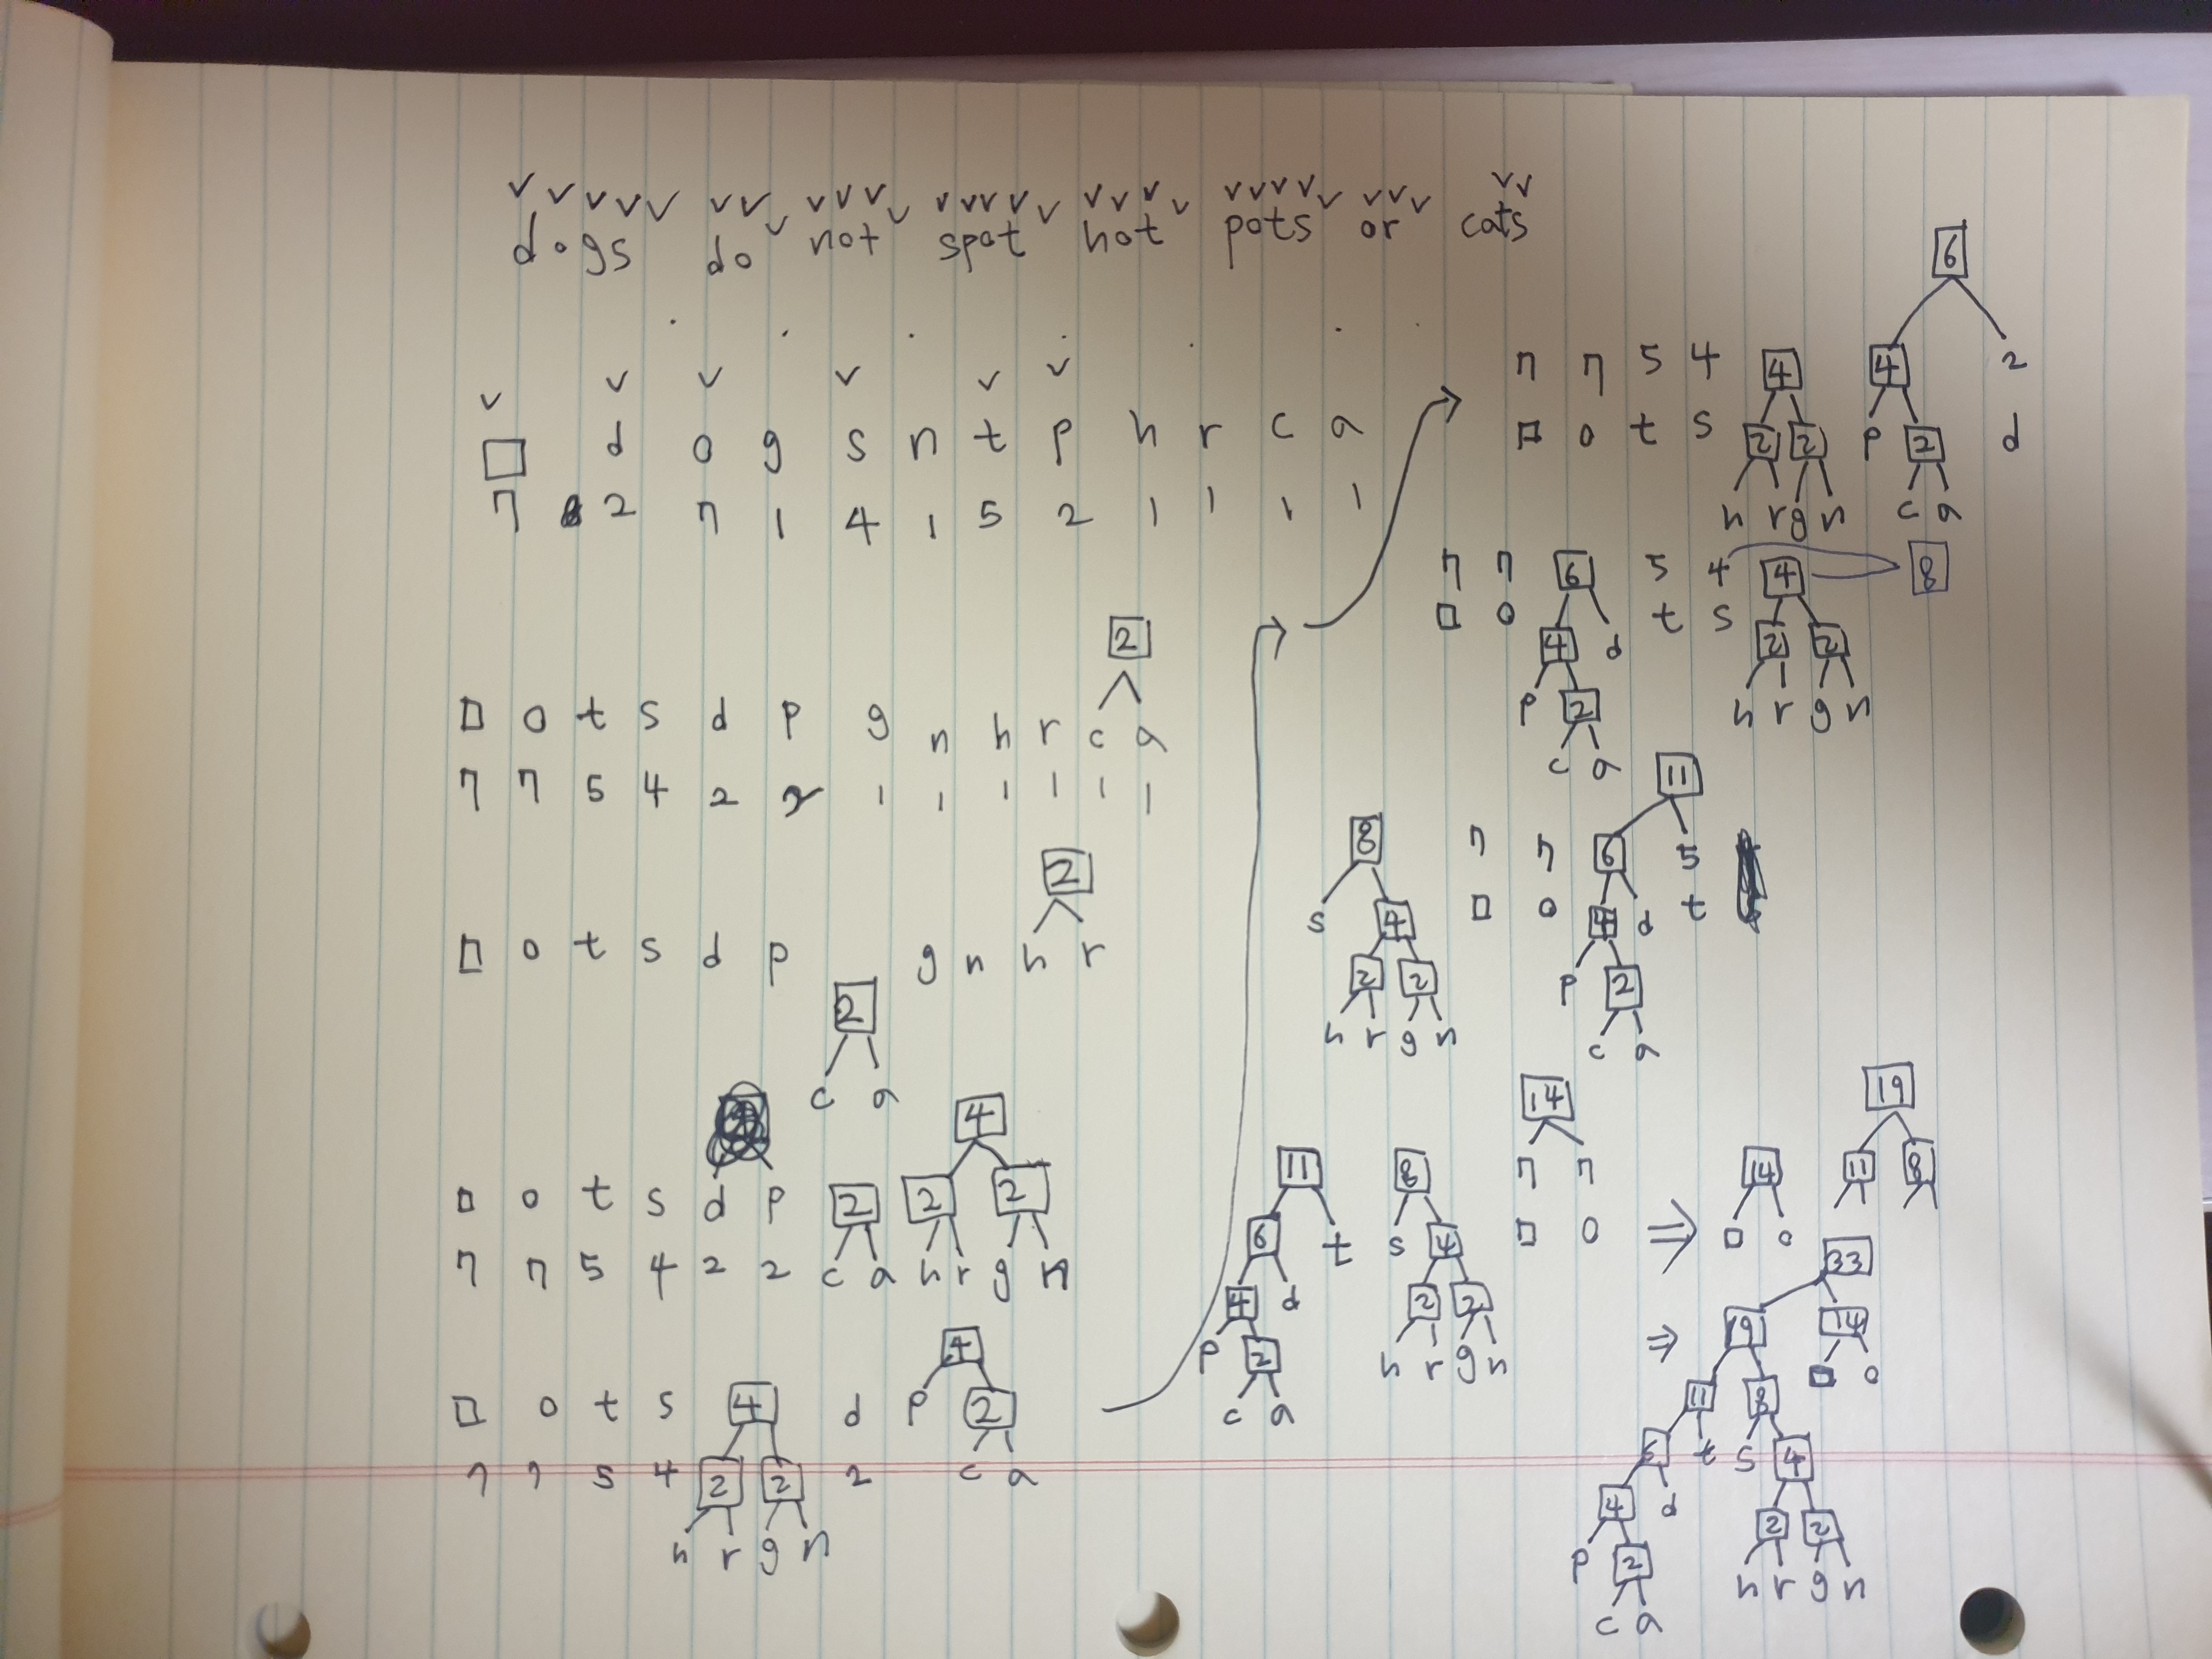 dogs do not spot hot pots or cats
□ d o g s n t p h r c a
7 2 7 1 4 1 5 2 1 1 1 1
2
□ o t s d p g n h r c a
7 7 5 4 2 2 1 1 1 1 1 1
2
□ o t s d p g n h r
2
c a
4
□ o t s d p 2 2 2
7 7 5 4 2 2 c a h r g n
4
□ o t s 4 d p 2
7 7 5 4 2 2 2 c a
h r g n
6
7 7 5 4 4 4 2
□ o t s 2 2 p 2 d
h r g n c a
7 7 6 5 4 4 8
□ o 4 d t s 2 2
p 2 h r g n
c a
11
8 7 7 6 5
s 4 □ o 4 d t
2 2 p 2
h r g n c a
14 19
11 8 7 7 14 11 8
6 t s 4 □ o ⇒ □ o
4 d 2 2
p 2 h r g n
c a
33
⇒ 19 14
11 8 □ o
6 t s 4
4 d 2 2
p 2 h r g n
c a